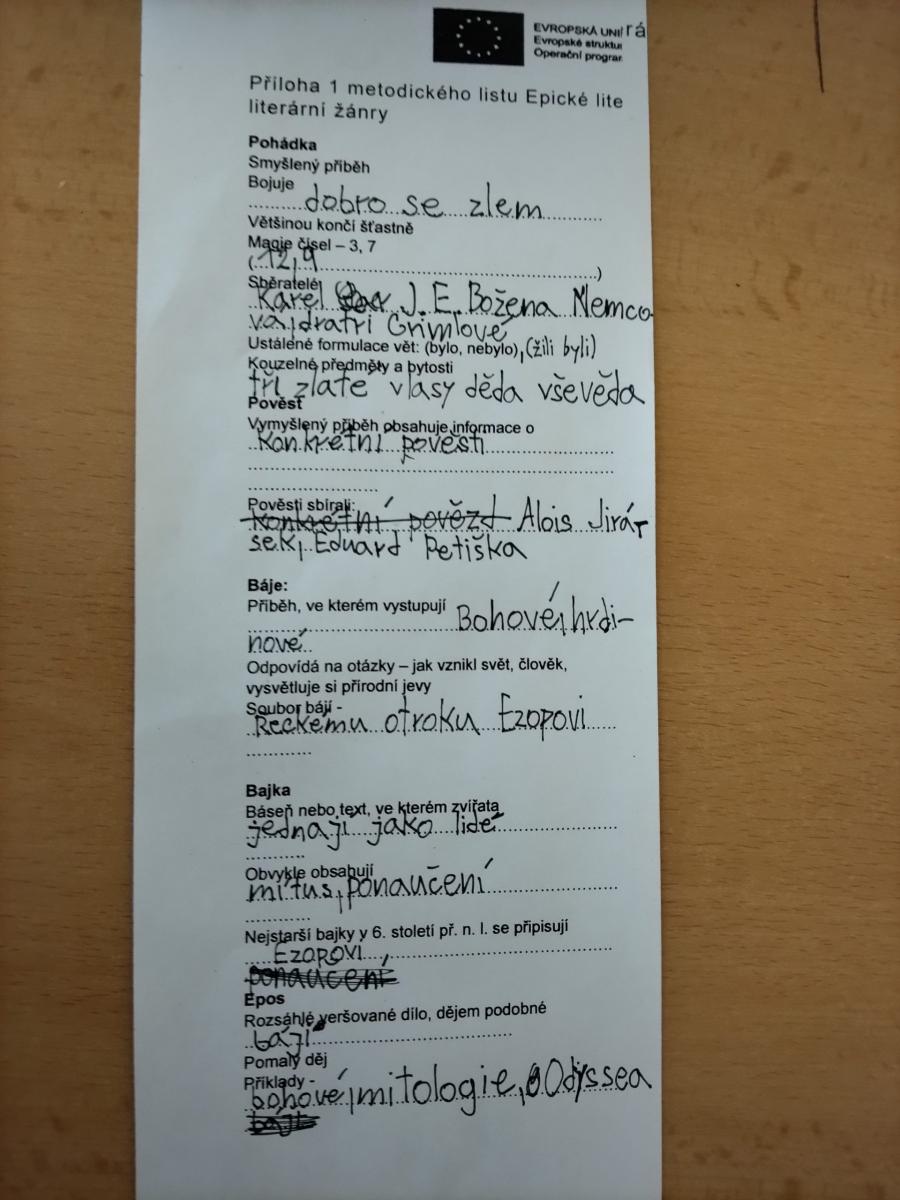 EVROPSKÁ UNI rá
Evropské struktu
Operační progran
Příloha 1 metodického listu Epické lite
literární žánry
Pohádka
Smyšlený příběh
Bojuje
dobro se zlem
Většinou končí šťastně
Magie čísel – 3, 7
(12,9)
Sběratelé
Karel J.E. Božena Němco-
va, dratři Grimlové
Ustálené formulace vět: (bylo, nebylo), (žili byli)
Kouzelné předměty a bytosti
tři zlaté vlasy děda vševěda
Pověst
Vymyšlený příběh obsahuje informace o
Konkrétní pověsti
Pověsti sbírali:
Konkrétní pověst Alois Jirár
sek, Eduard Petiška
Báje:
Příběh, ve kterém vystupují Bohové, hrdi-
nové
Odpovídá na otázky – jak vznikl svět, člověk,
vysvětluje si přírodní jevy
Soubor bájí -
Řeckému otroku Ezopovi
Bajka
Báseň nebo text, ve kterém zvířata
jednají jako lidé
Obvykle obsahují
mítus, ponaučení
Nejstarší bajky y 6. století př. n. l. se připisují
Ezopovi
ponaučení
Epos
Rozsáhlé veršované dílo, dějem podobné
bájí
Pomalý děj
Příklady -
bohové, mitologie, Odyssea